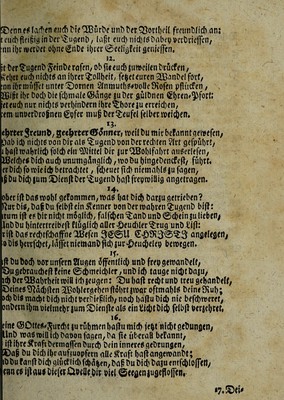 Denn es lachen euch die Würde und der Vortheil freundlich an:
euch fleißig in der Tugend, laßt euch nichts dabey verdriessen,
nn ihr werdet ohne Ende ihrer Seeligkeit geniessen.
12.
der Tugend Feinde rasen, ob sie euch zuweilen drücken,
kehrt euch nichts an ihrer Tollheit, setzet euren Wandel fort,
ihr müsset unter Dornen Anmuths-volle Rosen pflücken,
Wißt ihr doch die schmale Gänge zu der güldnen Ehren-Pfort:
et euch nur nichts verhindern ihre Thore zu erreichen,
em unverdroßnen Eyfer muß der Teufel selber weichen.
13.
ehrter Freund, geehrter Gönner, weil du mir bekannt gewesen,
Hab ich nichts von dir als Tugend von der rechten Art gespührt,
hast warhlich solch ein Mittel dir zur Wohlfahrt auserlesen,
Welches dich auch unumgänglich, wo du hingedenckest, führt.
er dich so wie ich betrachtet, scheuet sich niemahls zu sagen,
ß du dich zum Dienst der Tugend hast freywillig angetragen.
14.
oher ist das wohl gekommen, was hat dich darzu getrieben?
Nur dis, daß du selbst ein Kenner von der wahren Tugend bist:
tum ist es dir nicht möglich, falschen Tand und Schein zu lieben,
Und du hintertreibest klüglich aller Heuchler Trug und List:
ist das rechtschaffne Wesen JESU CHRISTI angelegen,
o dis herrschet, lässet niemand sich zur Heucheley bewegen.
15.
ist du doch vor unsern Augen öffentlich und frey gewandelt,
Du gebrauchest keine Schmeichler, und ich tauge nicht dazu,
ch der Wahrheit will ich zeugen: Du hast recht und treu gehandelt,
Deines Nächsten Wohlergehen stöhrt zwar ofmahls deine Ruh;
och dis macht dich nicht verdießlich, noch hastu dich nie beschweret,
ondern ihm vielmehr zum Dienste als ein Licht dich selbst verzehret.
16.
eine GOttes-Furcht zu rühmen hastu mich jetzt nicht gedungen,
Und was will ich davon sagen, da sie überall bekannt,
ist ihre Kraft dermassen durch dein inneres gedrungen,
Daß du dich ihr aufzuopfern alle Kraft hast angewandt;
d du kanst dich glücklich schätzen, daß du dich dazu entschlossen,
enn es ist aus dieser Quelle dir viel Seegen zugeflossen.
17. Dei-